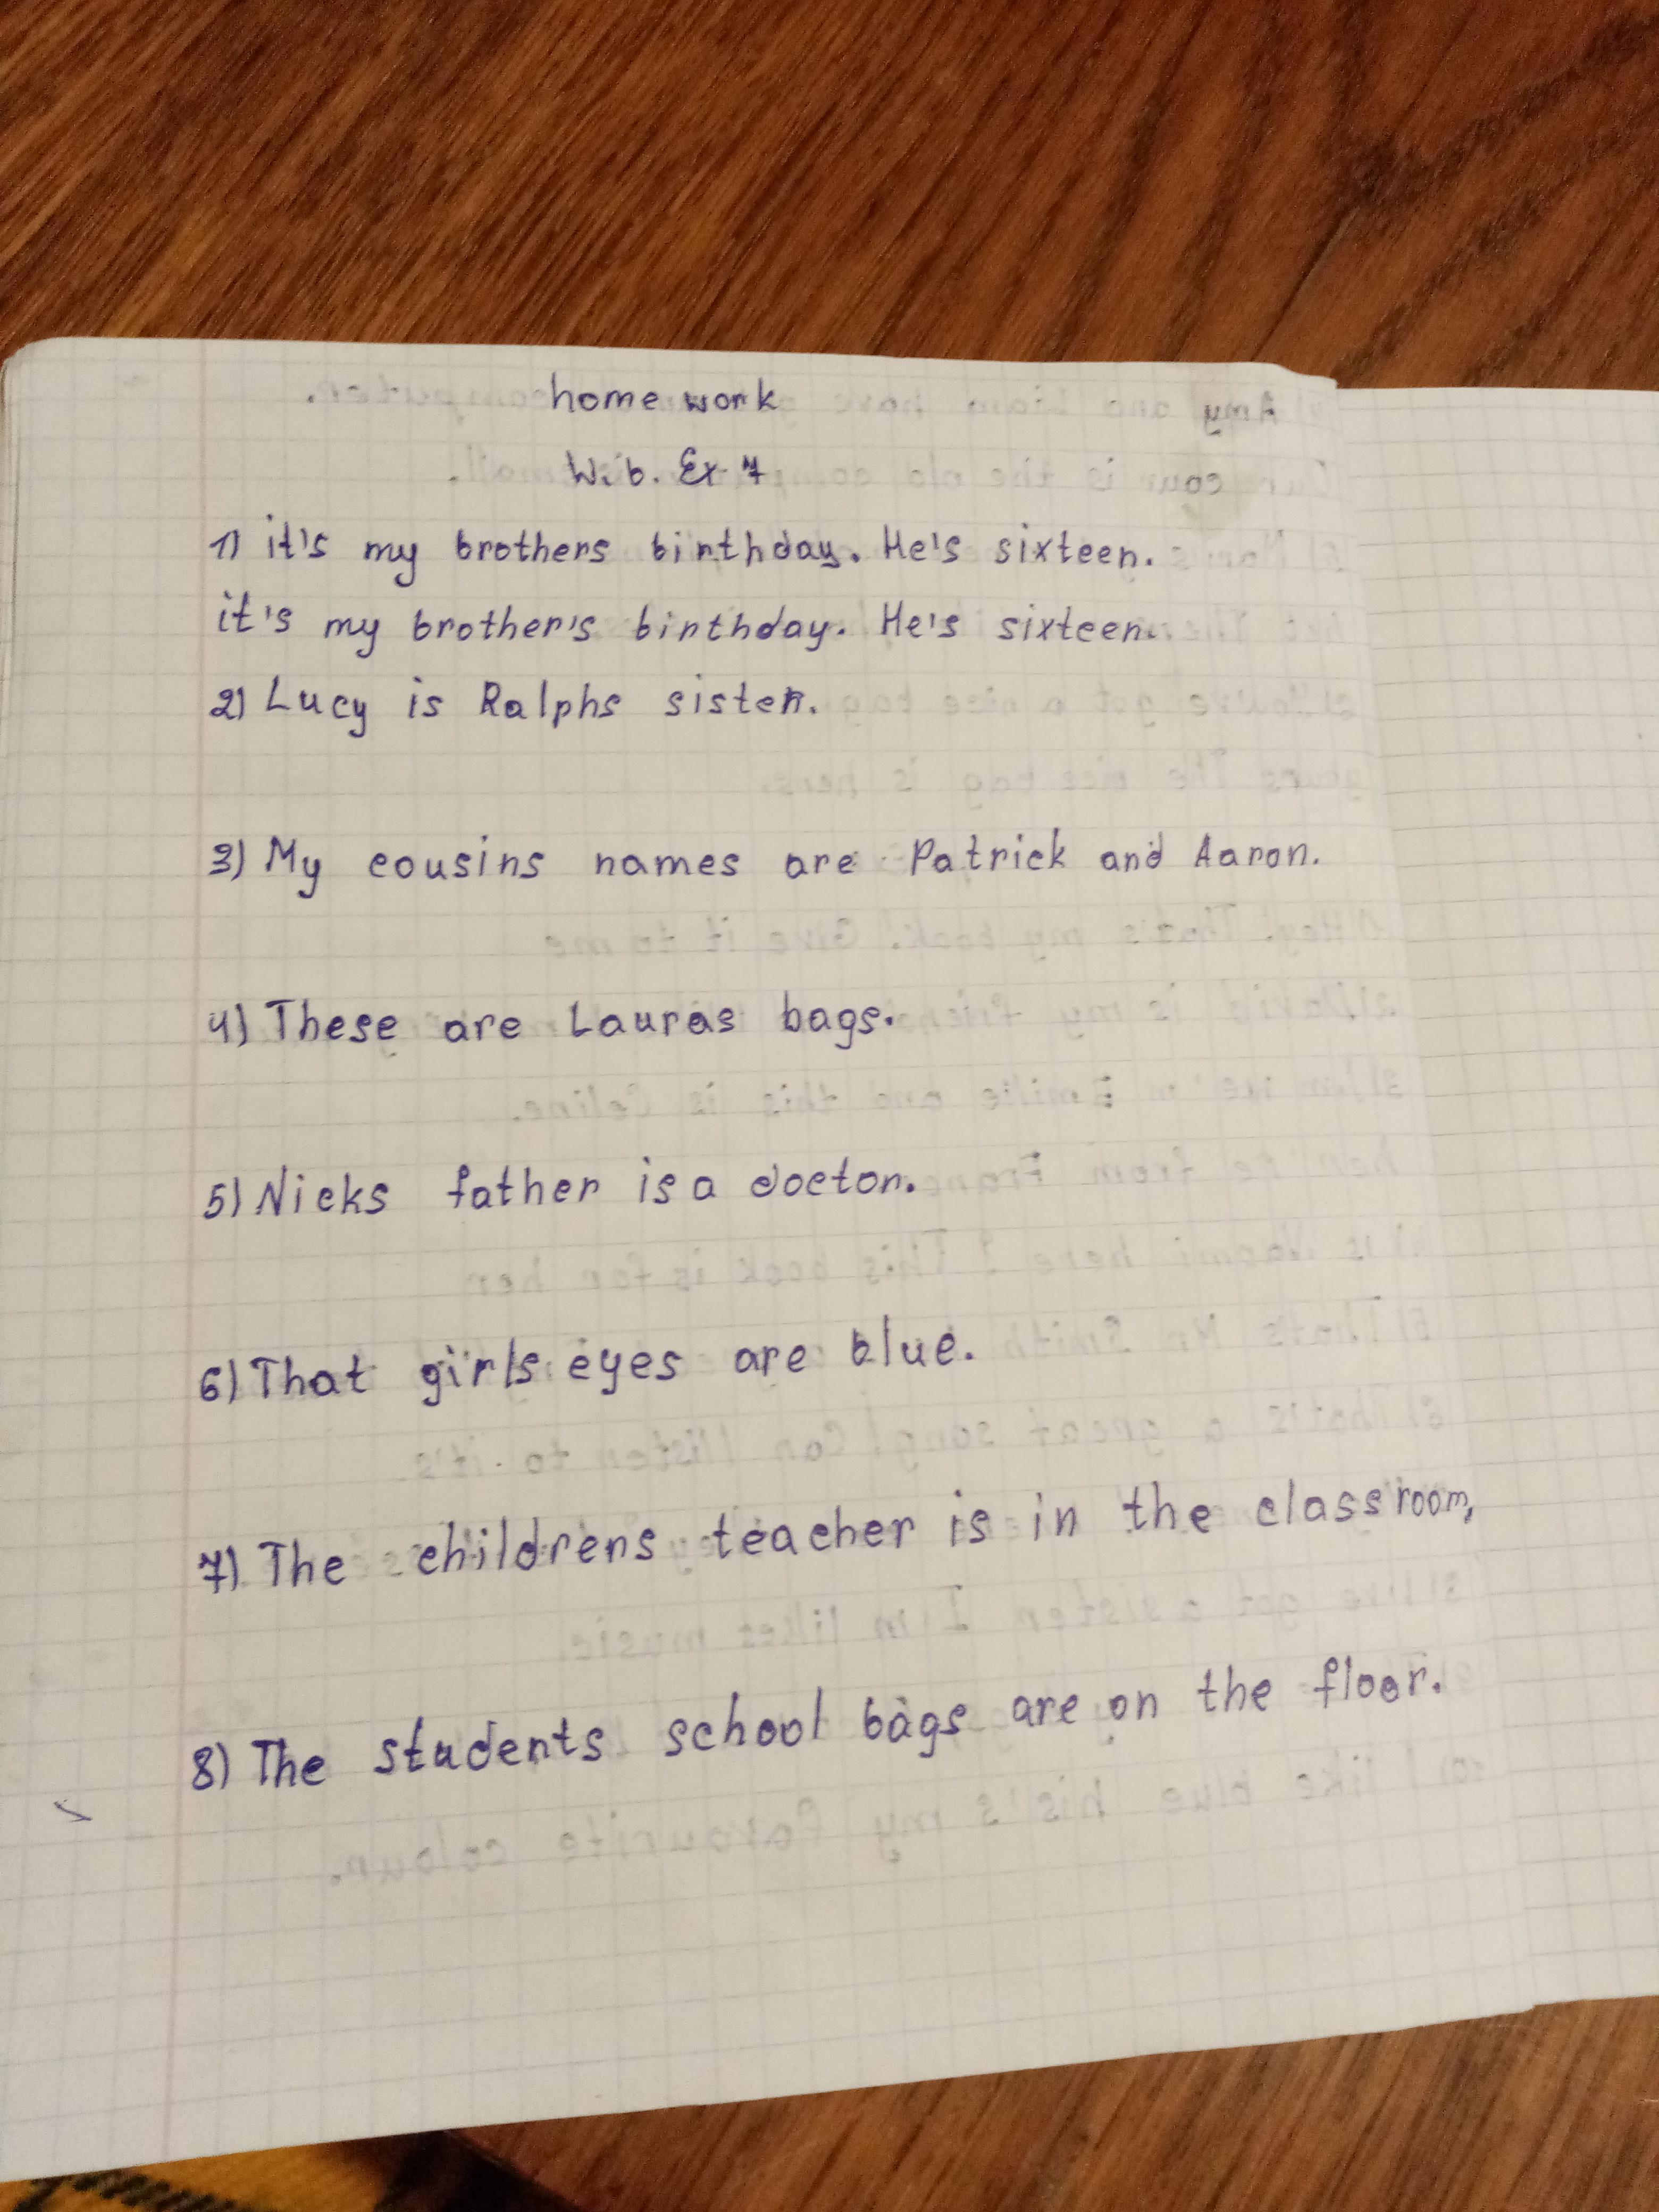 home work
W.b. Ex 7
1) it's my brothers birthday. He's sixteen.
it's my brother's birthday. He's sixteen.
2) Lucy is Ralphs sister.
3) My cousins names are Patrick and Aaron.
4) These are Lauras bags.
5) Nicks father is a doctor.
6) That girls eyes are blue.
7) The childrens teacher is in the classroom,
8) The students school bags are on the floor.